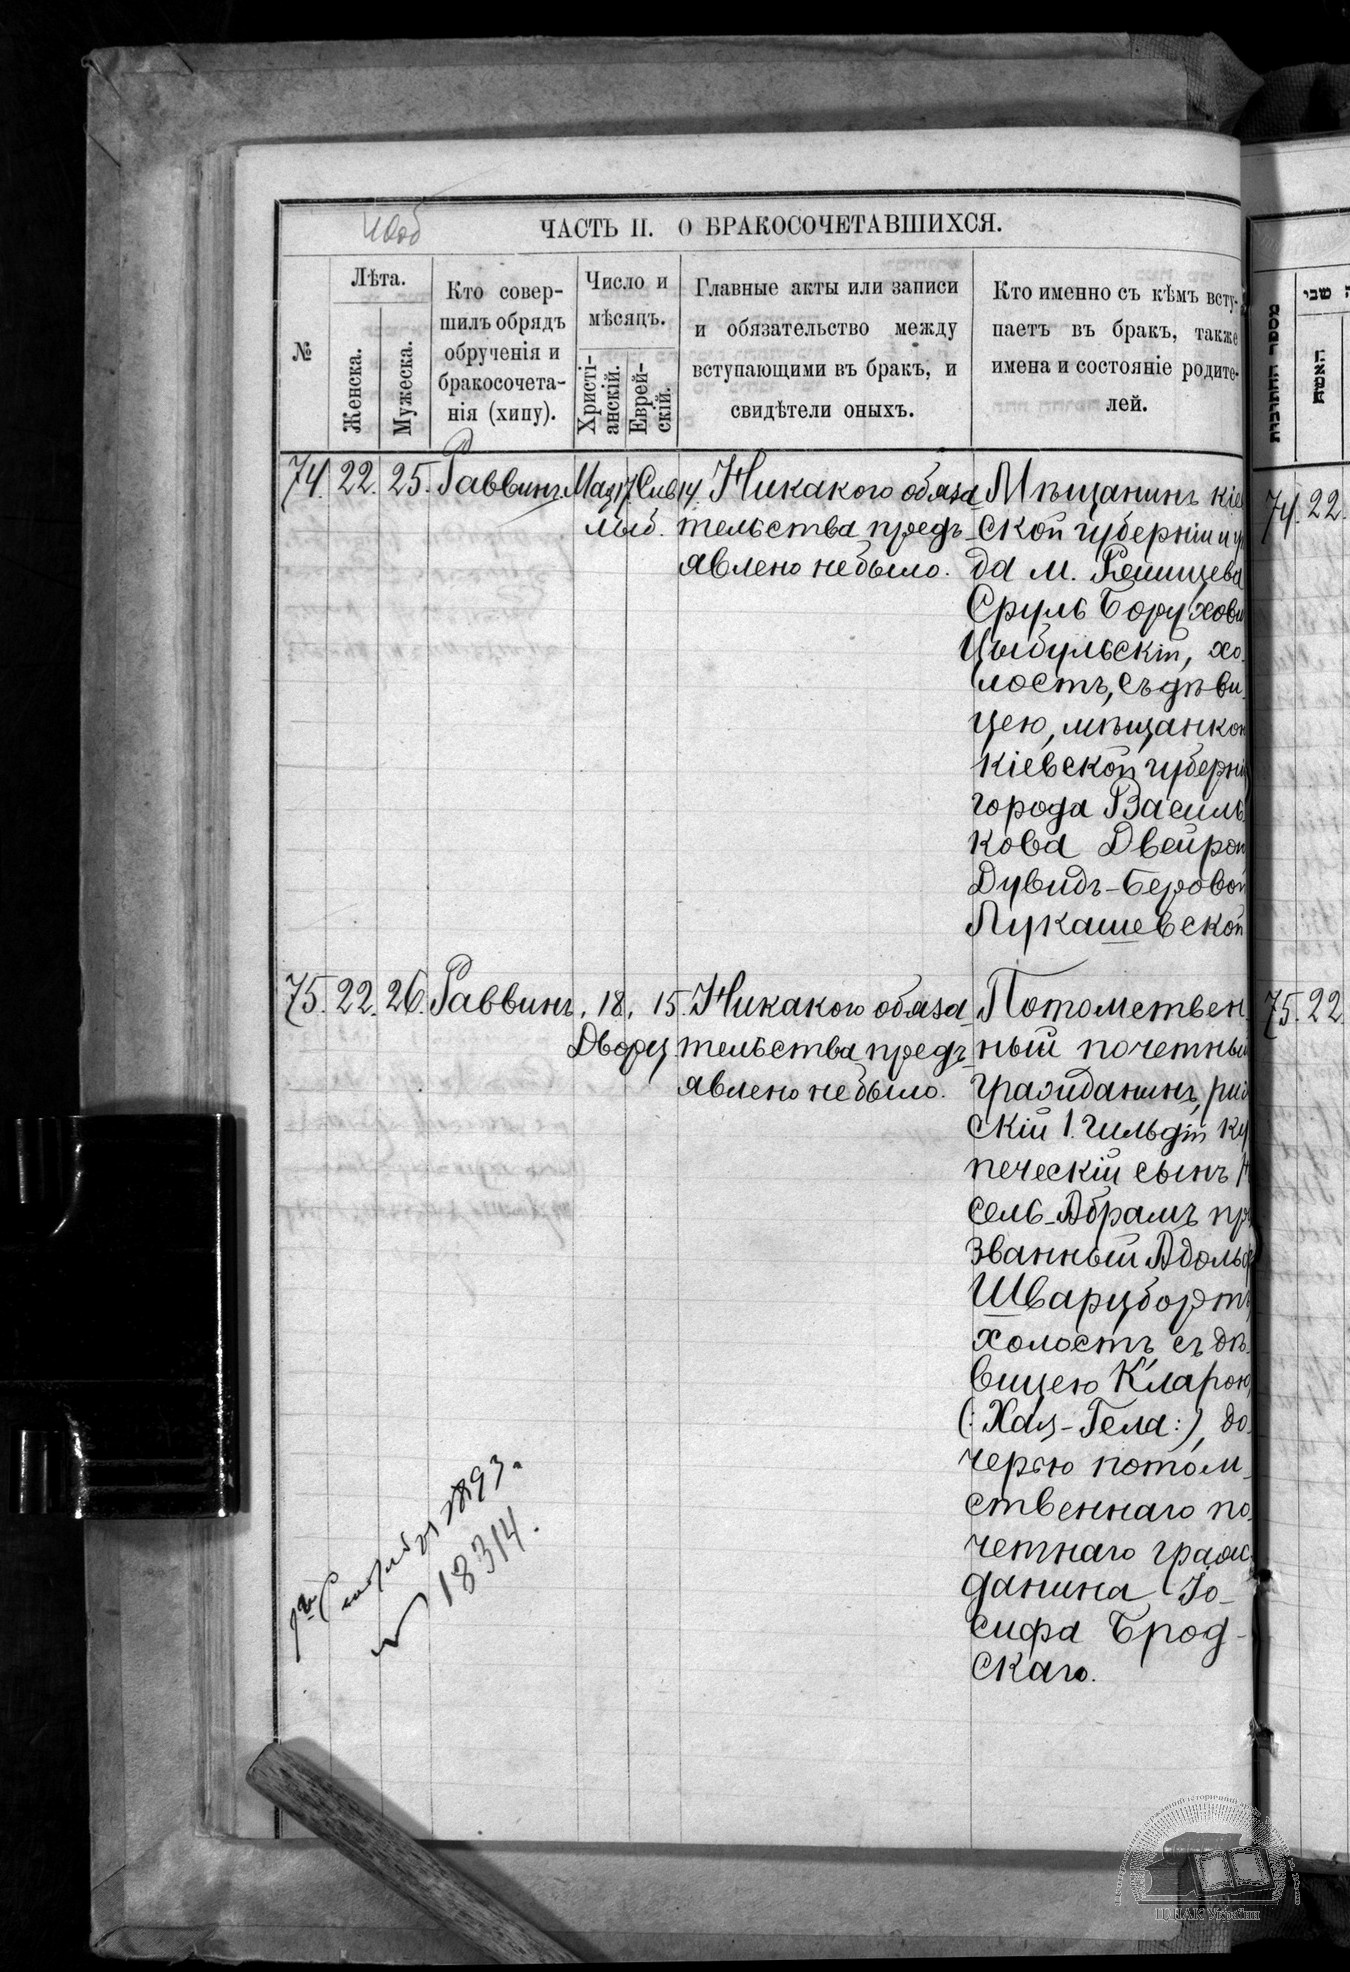 ЧАСТЬ II. О БРАКОСОЧЕТАВШИХСЯ.
№
Лѣта.
Женска.
Мужеска.
Кто совер-
шилъ обрядъ
обрученія и
бракосочета-
нія (хипу).
Число и
мѣсяцъ.
Христі-
анскій.
Еврей-
скій.
Главные акты или записи
и обязательство между
вступающими въ бракъ, и
свидѣтели оныхъ.
Кто именно съ кѣмъ всту-
паетъ въ бракъ, также
имена и состояніе родите-
лей.
74. 22. 25. Раввинъ 17 14. Никакого обяза
тельства предъ-
явлено не было.
Мѣщанинъ кіе
ской губерніи и у
да м.
Сруль Борухови
Цыбульскій, хо-
лостъ, съ дѣви-
цею, мѣщанкой
кіевской губерніи
города Василь
кова Двейрой
Дувидъ-Беровой
Лукашевской
75. 22. 26. Раввинъ. 18. 15. Никакого обяза-
тельства предъ-
явлено не было.
Потомствен-
ный почетный
гражданинъ,
скій 1. гильдіи ку
печескій сынъ
сель-Абрамъ пр
званный Адольф
Шварцбортъ,
холостъ съ дѣ-
вицею Кларою
(:Хая-Гела:), до-
черью потом-
ственнаго по-
четнаго граж-
данина Іо-
сифа Брод-
скаго.
1893.
18314.
מספר החתונות
האשה
74. 22.
75. 22
ЦДІАК України